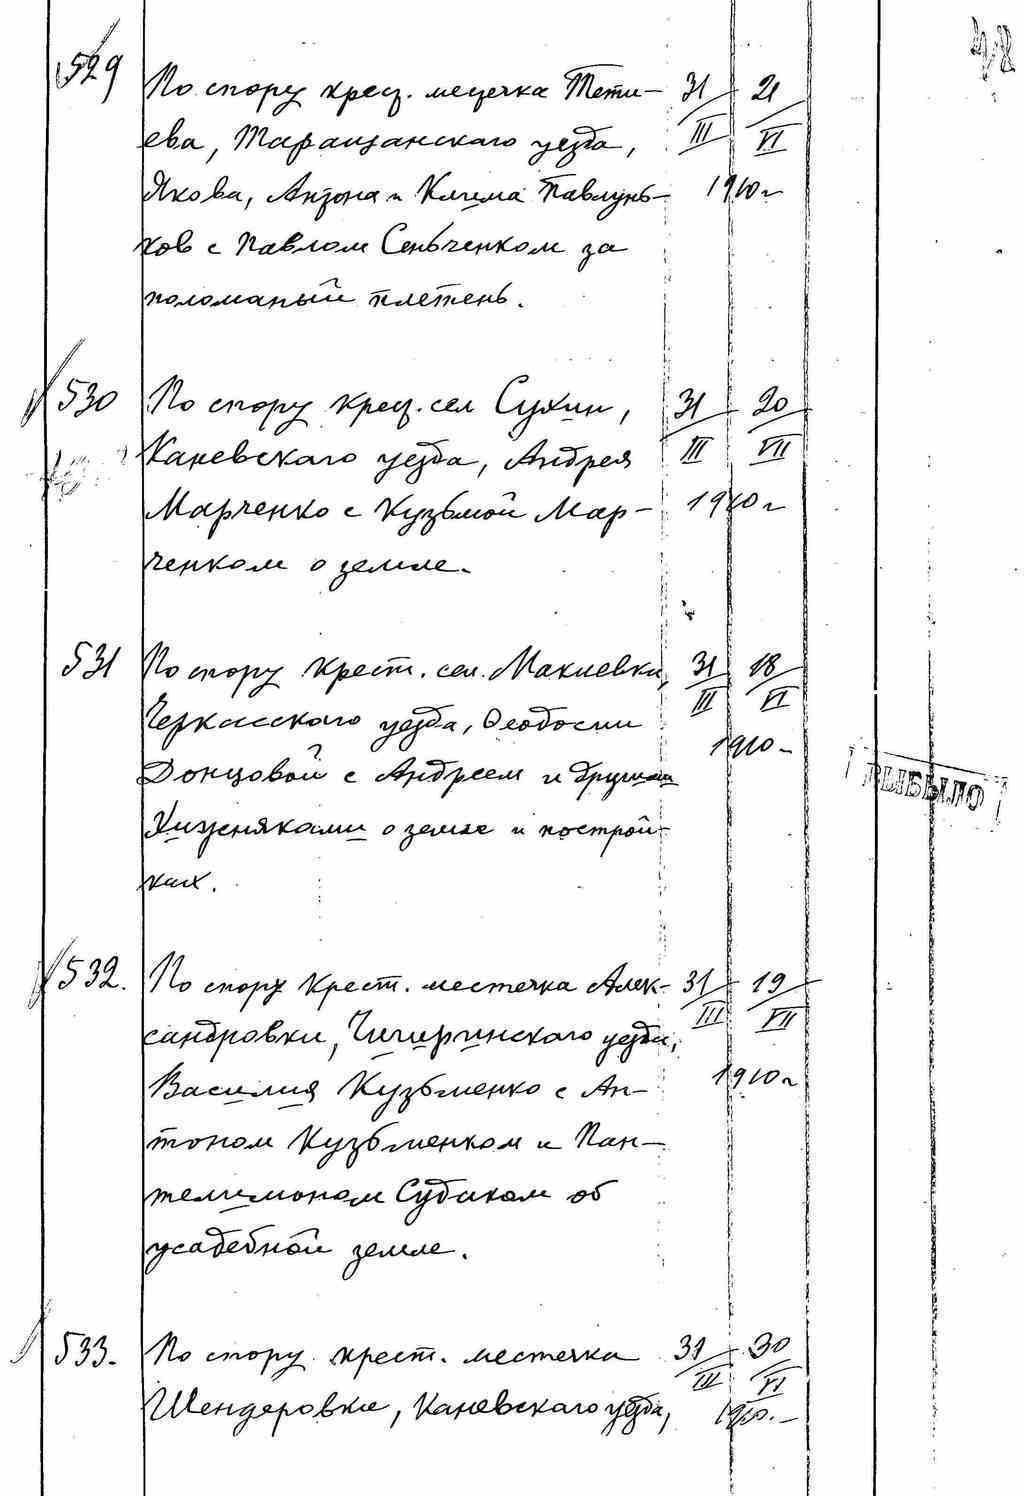 48
529 По спору крест. местечка Тети-
ева, Таращанскаго уезда,
Якова, Антона и Клима Павлунь-
ков с Павлом Сеньченком за
поломаный плетень.
31/III 21/VI
1910 г
530 По спору крест. сел Сухин,
Каневскаго уезда, Андрея
Марченко с Кузьмой Мар-
ченком о земле.
31/III 20/VII
1910 г
531 По спору крест. сел. Макиевки,
Черкасскаго уезда, Феодосии
Донцовой с Андреем и другими
Хижняками о земле и построй-
ках.
31/III 18/VI
1910
ВЫБЫЛО
532. По спору крест. местечка Алек-
сандровки, Чигиринскаго уезда,
Василия Кузьменко с Ан-
тоном Кузьменком и Пан-
телимоном Судиком об
усадебной земле.
31/III 19/VII
1910 г
533. По спору крест. местечка
Шендеровки, Каневскаго уезда,
31/III 30/VI
1910.